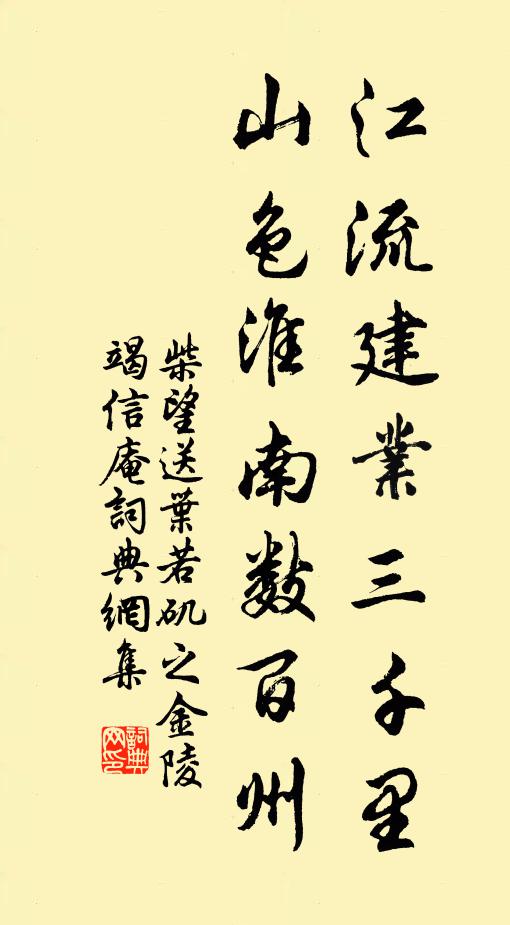 江流建業三千里
山色淮南数百州
柴望送葉若矶之金陵
竭信庵詞典網集
詞典网印